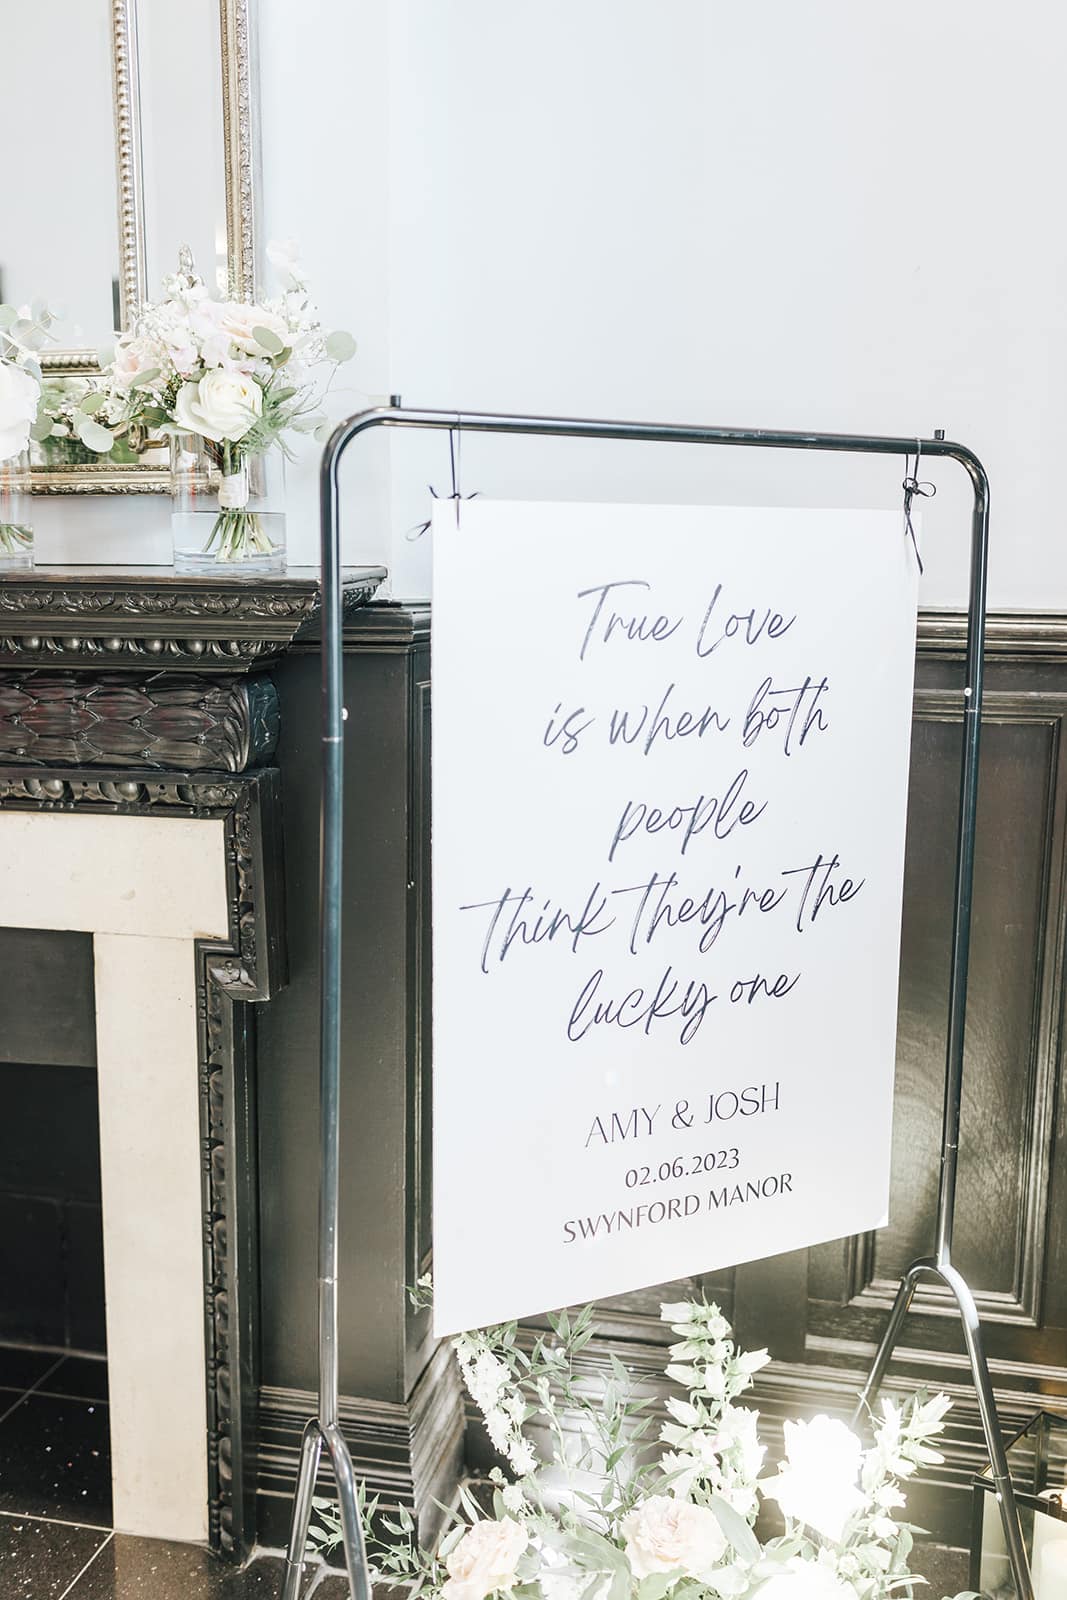 True Love
is when both
people
think they're the
lucky one
AMY & JOSH
02.06.2023
SWYNFORD MANOR